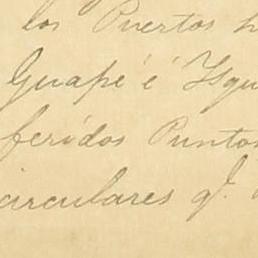 los Puertos h
Guapé é Ysqu
feridos Puntos
irculares q.